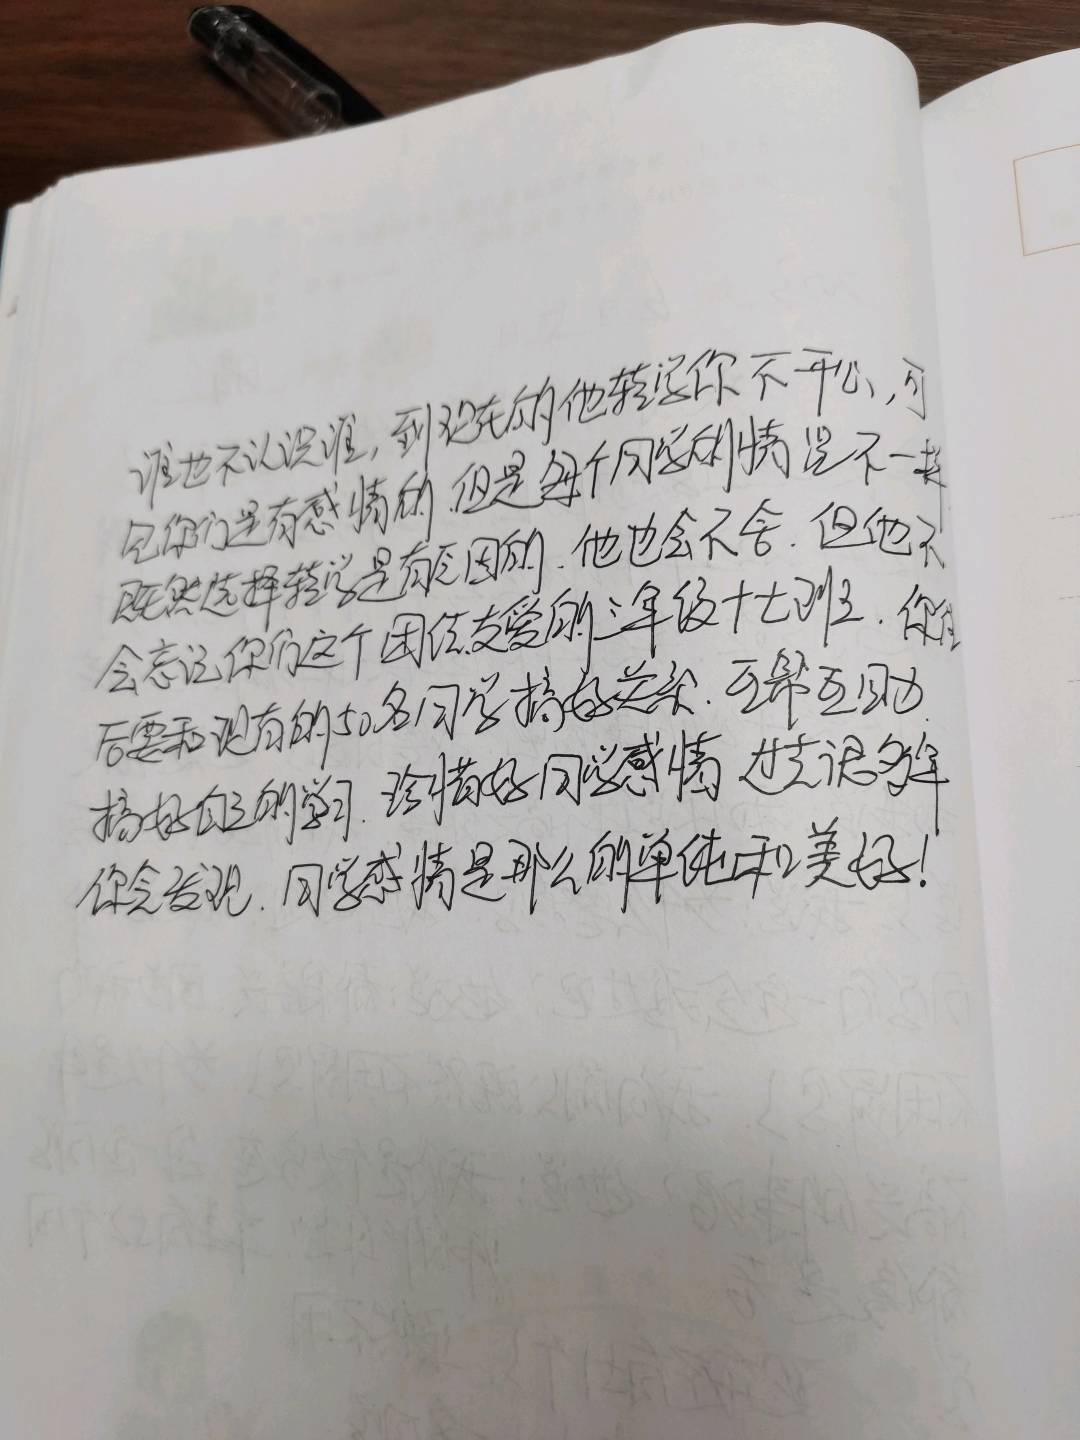 谁也不认识谁,到现在的他转学你不开心,可
见你们是有感情的.但是每个同学的情况不一样
既然选择转学是有原因的.他也会不舍.但他不
会忘记你们这个团结友爱的三年级十七班.你往
后要和现有的50名同学搞好关系.互帮互助.
搞好自己的学习.珍惜好同学感情 过去很多年
你会发现.同学感情是那么的单纯和美好!